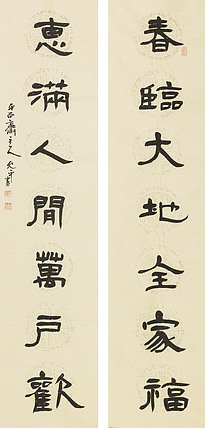 春臨大地全家福
惠滿人間萬戶歡